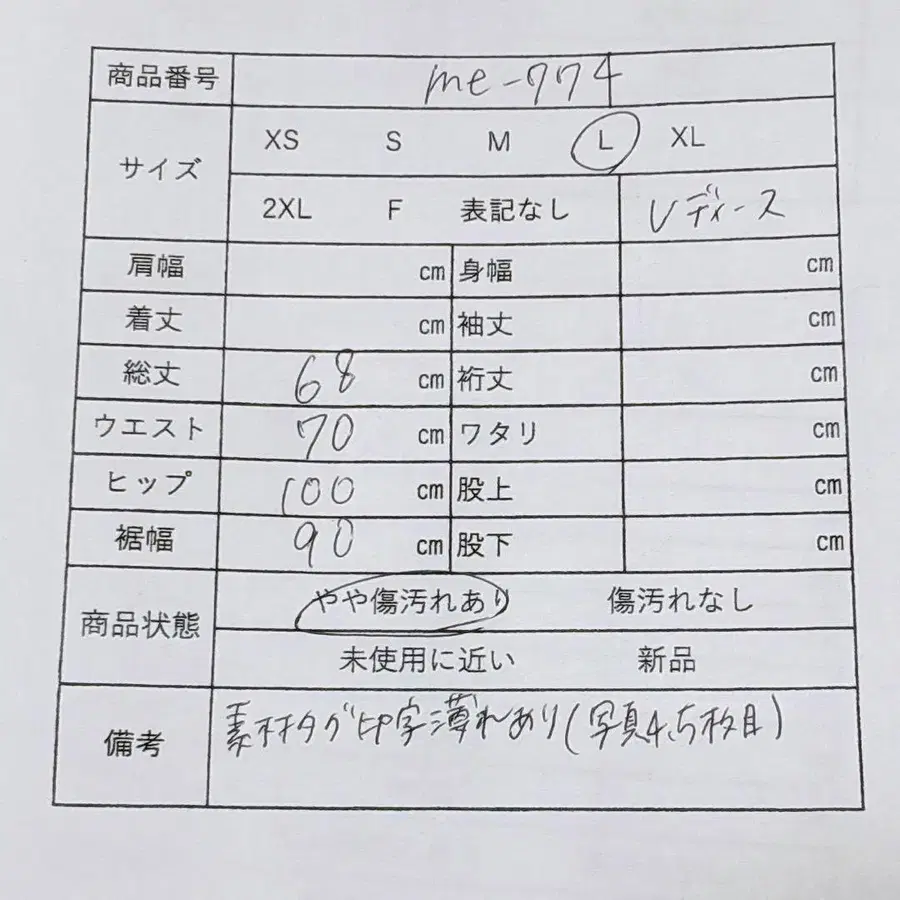 商品番号 me-774
サイズ XS S M L XL
2XL F 表記なし レディース
肩幅 cm 身幅 cm
着丈 cm 袖丈 cm
総丈 68 cm 裄丈 cm
ウエスト 70 cm ワタリ cm
ヒップ 100 cm 股上 cm
裾幅 90 cm 股下 cm
商品状態 やや傷汚れあり 傷汚れなし
未使用に近い 新品
備考 素材タグ印字薄れあり(写真4,5枚目)